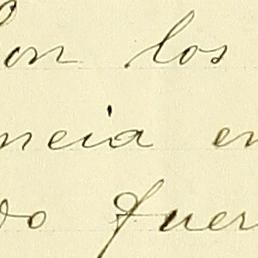 on los
ncia en
do fuer